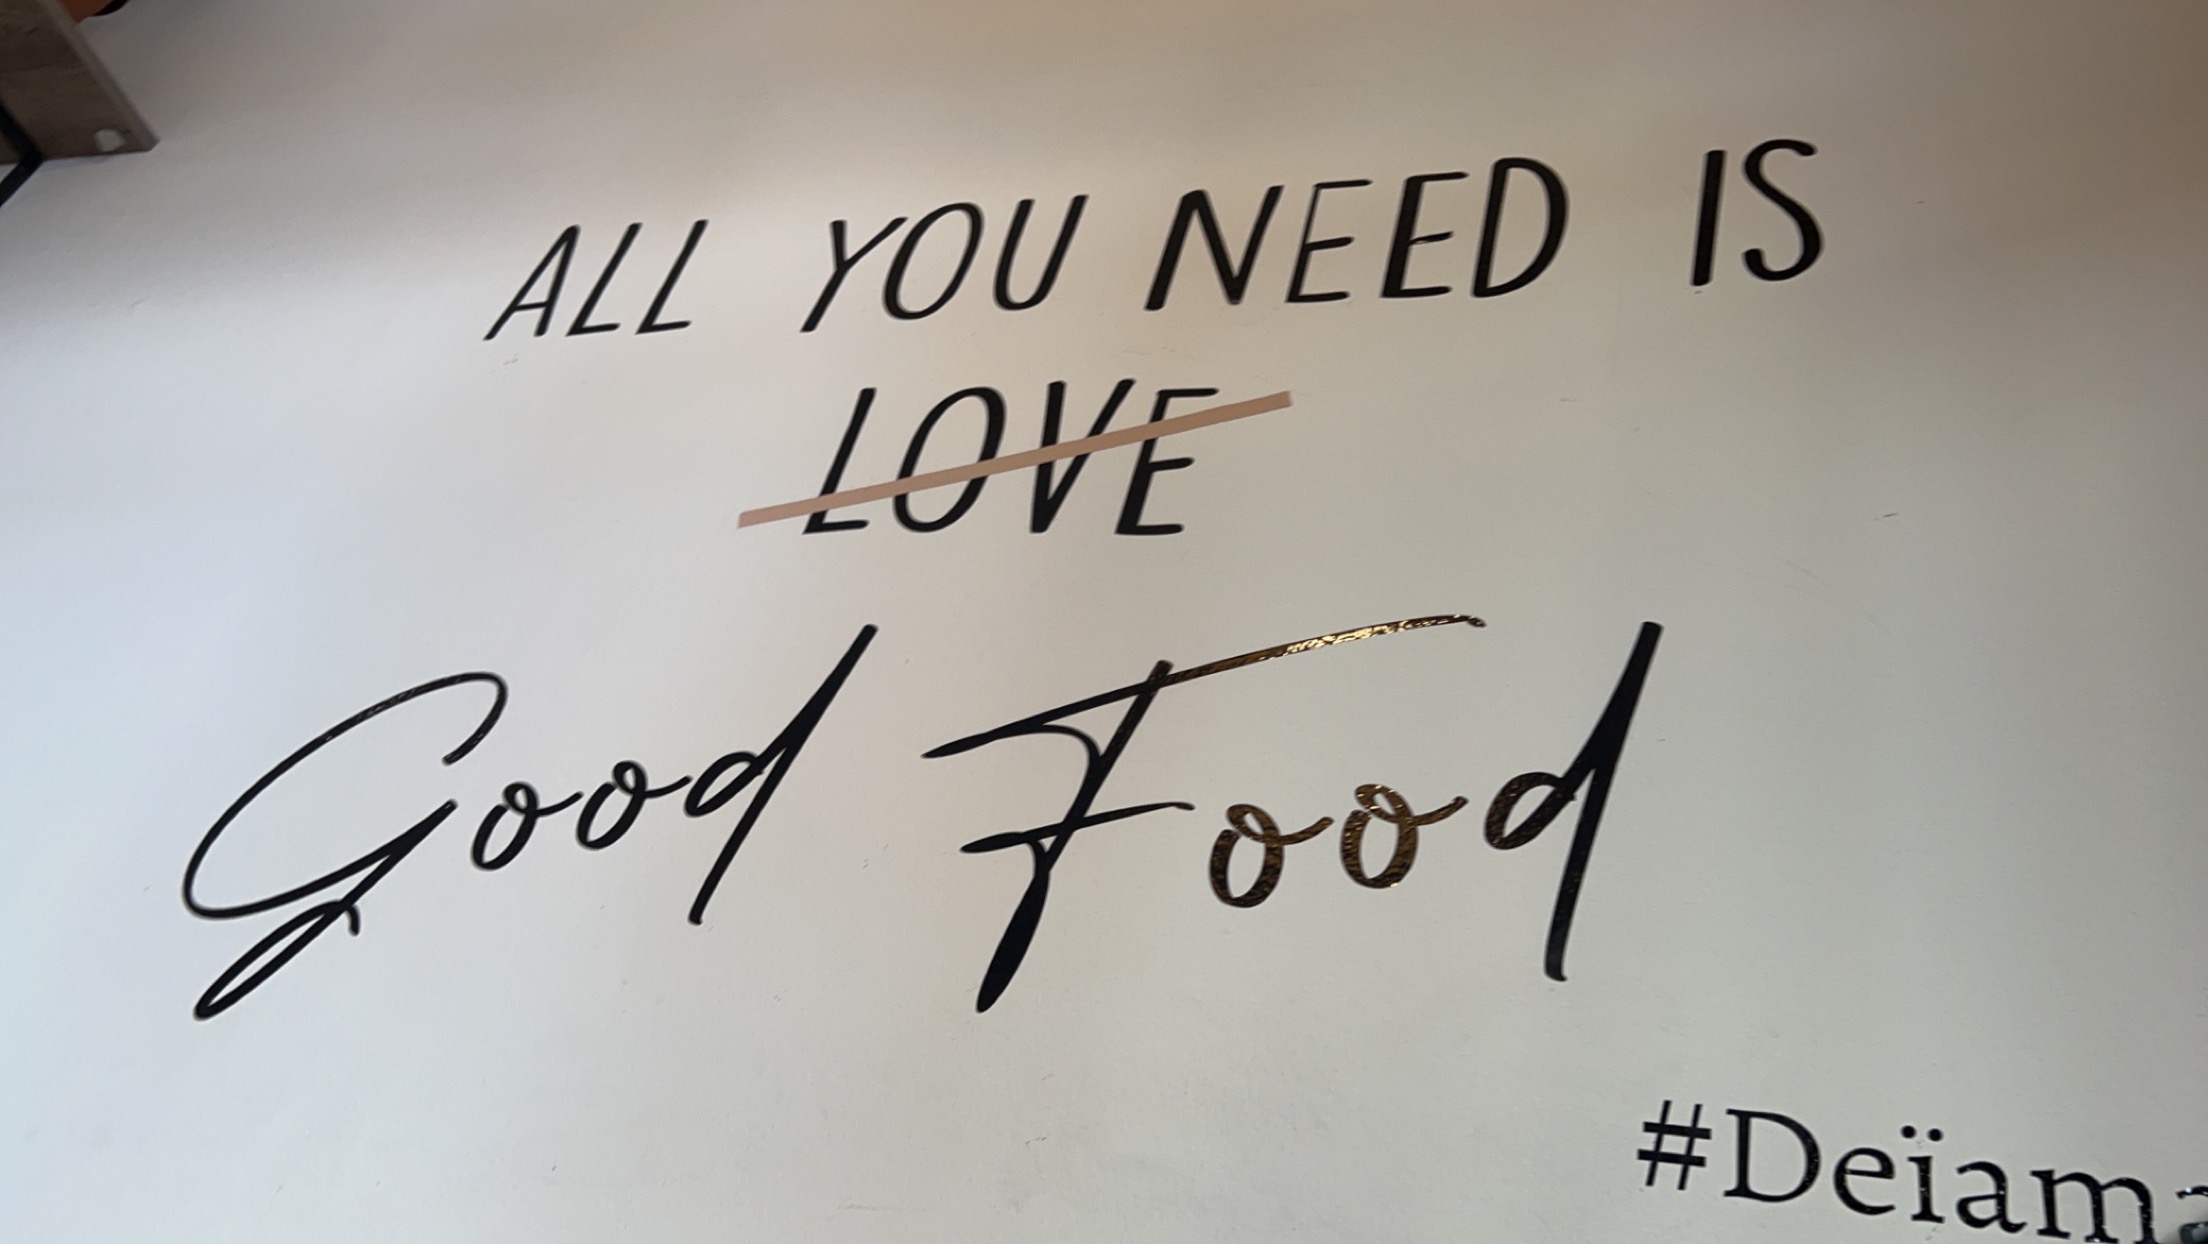 ALL YOU NEED IS
LOVE
Good Food